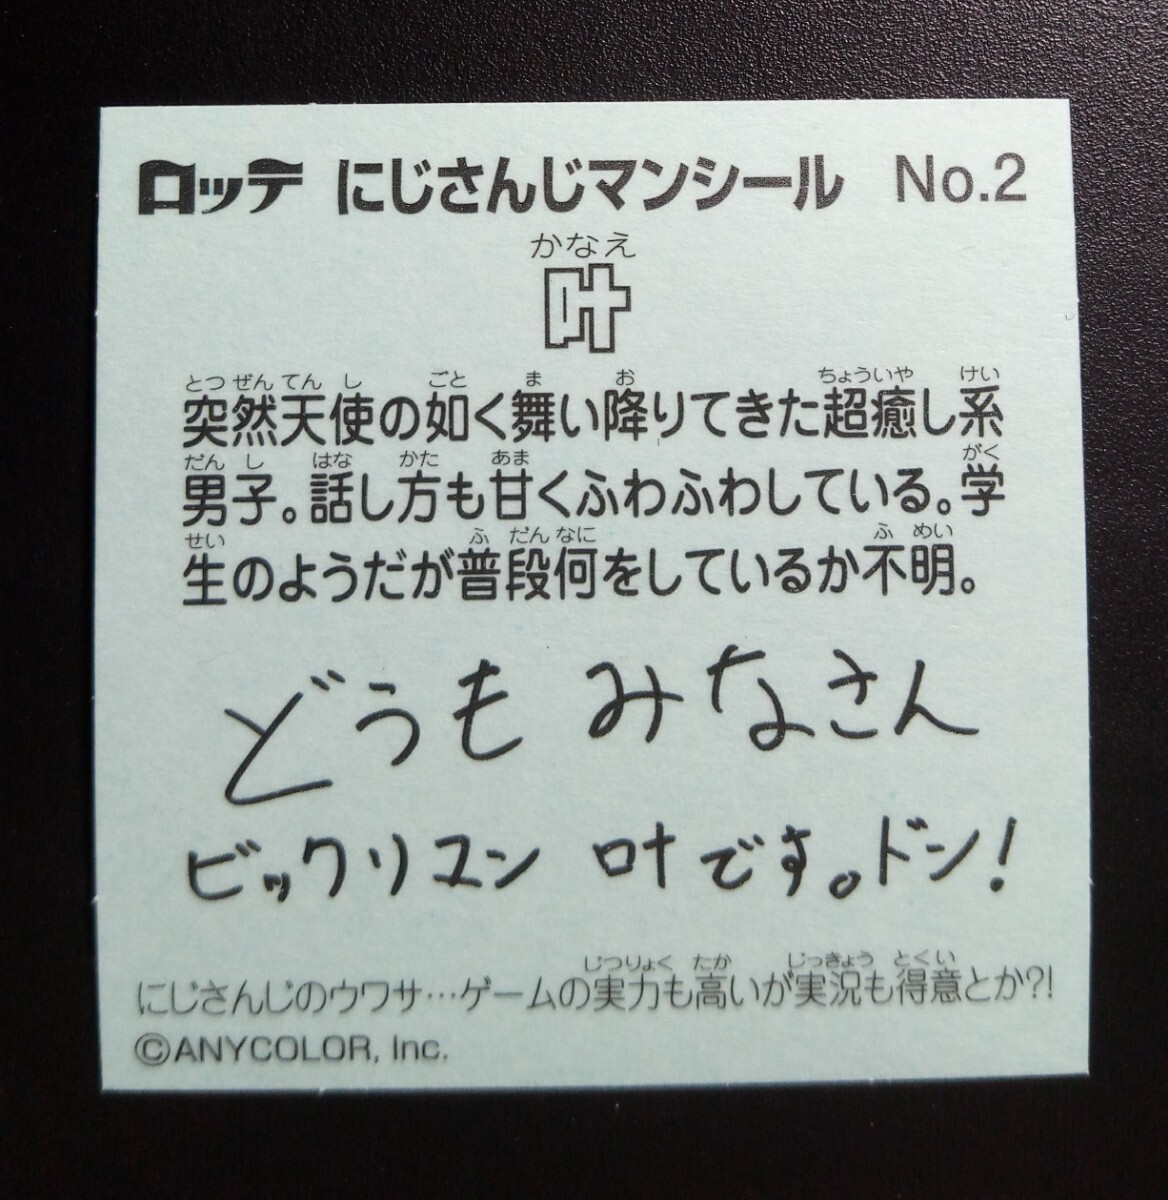 ロッテ にじさんじマンシール No.2
かなえ
叶
とつぜんてんし ごと ま お ちょういや けい
突然天使の如く舞い降りてきた超癒し系
だんし はな かた あま がく
男子。話し方も甘くふわふわしている。学
せい ふ だん なに ふ めい
生のようだが普段何をしているか不明。
どうも みなさん
ビックリユン 叶です。ドン!
じつりょく たか じっきょう とくい
にじさんじのウワサ…ゲームの実力も高いが実況も得意とか?!
©ANYCOLOR, Inc.